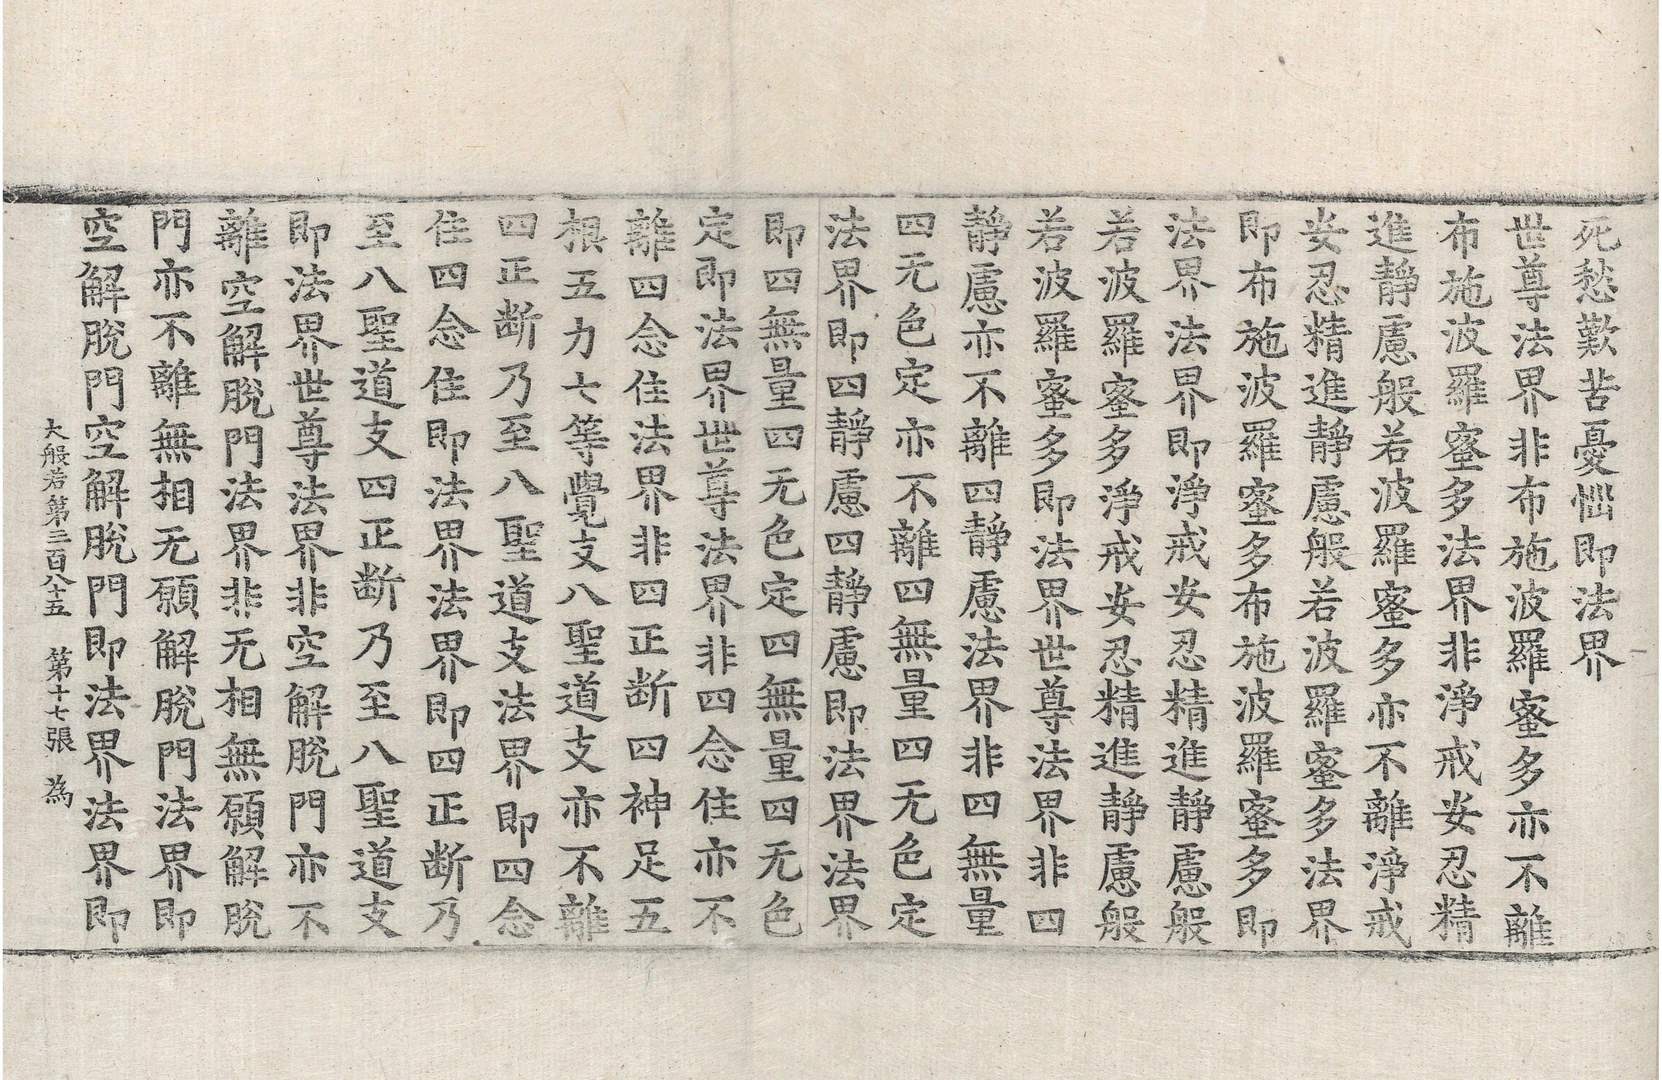 死愁歎苦憂惱即法界
世尊法界非布施波羅蜜多亦不離
布施波羅蜜多法界非淨戒安忍精
進靜慮般若波羅蜜多亦不離淨戒
安忍精進靜慮般若波羅蜜多法界
即布施波羅蜜多布施波羅蜜多即
法界法界即淨戒安忍精進靜慮般
若波羅蜜多淨戒安忍精進靜慮般
若波羅蜜多即法界世尊法界非四
靜慮亦不離四靜慮法界非四無量
四无色定亦不離四無量四无色定
法界即四靜慮四靜慮即法界法界
即四無量四无色定四無量四无色
定即法界世尊法界非四念住亦不
離四念住法界非四正断四神足五
根五力七等覺支八聖道支亦不離
四正断乃至八聖道支法界即四念
住四念住即法界法界即四正断乃
至八聖道支四正断乃至八聖道支
即法界世尊法界非空解脫門亦不
離空解脫門法界非无相無願解脫
門亦不離無相无願解脫門法界即
空解脫門空解脫門即法界法界即
大般若第三百八十五 第十七張 為